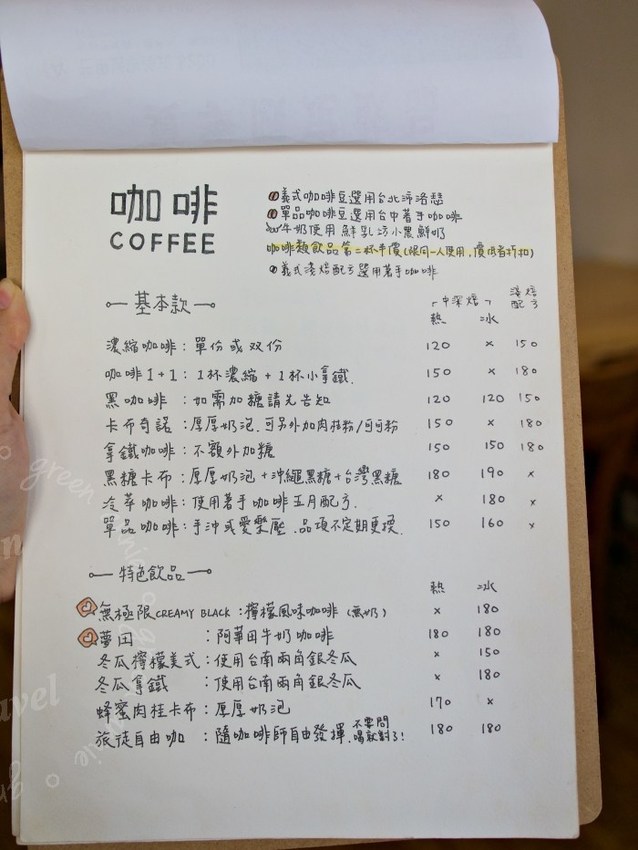 咖啡
COFFEE
義式咖啡豆選用台北沛洛瑟
單品咖啡豆選用台中著手咖啡
牛奶使用鮮乳坊小農鮮奶
咖啡類飲品第二杯半價(限同一人使用,價低者折扣)
義式淺焙配方選用著手咖啡
基本款
「中深焙」 淺焙配方
熱 冰
濃縮咖啡:單份或双份 120 x 150
咖啡1+1:1杯濃縮+1杯小拿鐵. 150 x 180
黑咖啡:如需加糖請先告知 120 120 150
卡布奇諾:厚厚奶泡.可另外加肉桂粉/可可粉 150 x 180
拿鐵咖啡:不額外加糖 150 150 180
黑糖卡布:厚厚奶泡+沖繩黑糖+台灣黑糖 180 190 x
冷萃咖啡:使用著手咖啡五月配方. x 180 x
單品咖啡:手沖或愛樂壓.品項不定期更換. 150 160 x
特色飲品
熱 冰
無極限CREAMY BLACK:檸檬風味咖啡(無奶) x 180
夢田:阿華田牛奶咖啡 180 180
冬瓜檸檬美式:使用台南兩角銀冬瓜 x 150
冬瓜拿鐵:使用台南兩角銀冬瓜 x 180
蜂蜜肉桂卡布:厚厚奶泡 170 x
旅徒自由咖:隨咖啡師自由發揮.不要問喝就對了! 180 180
green